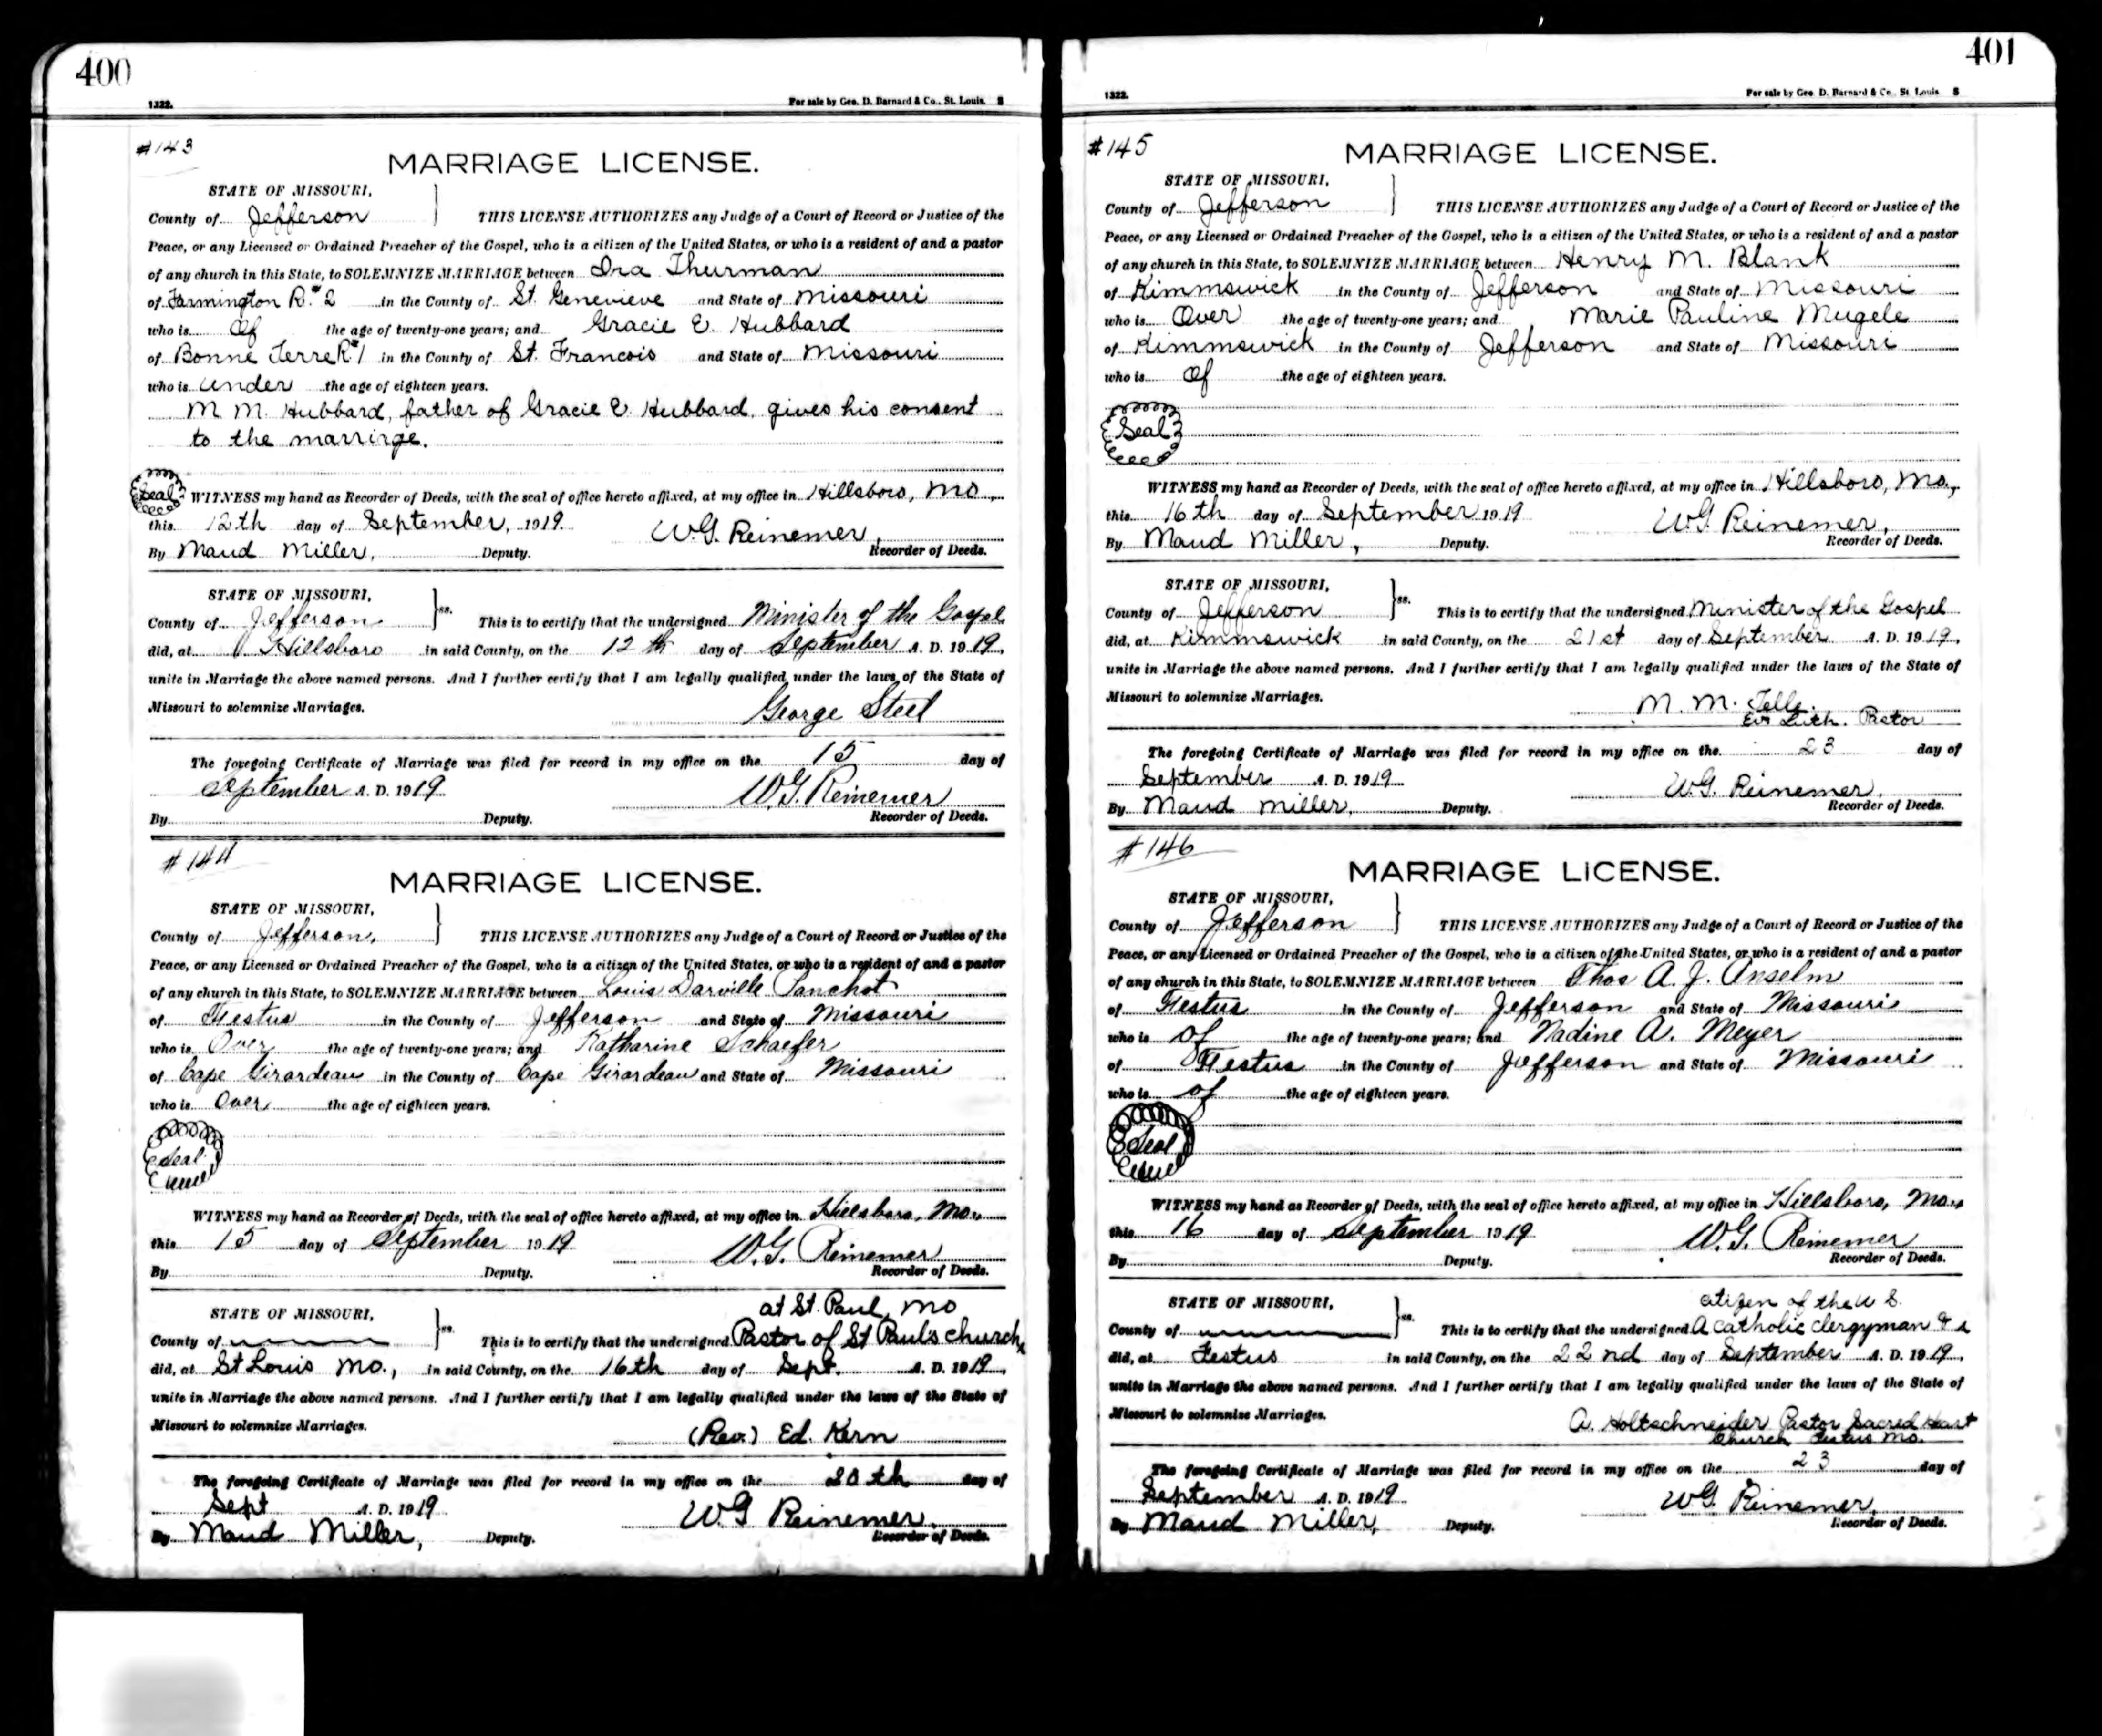 400
1322.
For sale by Geo. D. Barnard & Co., St. Louis. S
#143
MARRIAGE LICENSE.
STATE OF MISSOURI,
County of Jefferson THIS LICENSE AUTHORIZES any Judge of a Court of Record or Justice of the
Peace, or any Licensed or Ordained Preacher of the Gospel, who is a citizen of the United States, or who is a resident of and a pastor
of any church in this State, to SOLEMNIZE MARRIAGE between Ira Thurman
of Farmington R.#2 in the County of St. Genevieve and State of Missouri
who is Of the age of twenty-one years; and Gracie E. Hubbard
of Bonne Terre R#1 in the County of St. Francois and State of Missouri
who is under the age of eighteen years.
M. M. Hubbard, father of Gracie E. Hubbard, gives his consent
to the marrirge.
Seal WITNESS my hand as Recorder of Deeds, with the seal of office hereto affixed, at my office in Hillsboro, Mo.,
this 12th day of September, 1919. W.G. Reinemer,
By Maud Miller, Deputy. Recorder of Deeds.
STATE OF MISSOURI,
County of Jefferson ss. This is to certify that the undersigned Minister of the Gospel
did, at Hillsboro in said County, on the 12th day of September A. D. 1919,
unite in Marriage the above named persons. And I further certify that I am legally qualified under the laws of the State of
Missouri to solemnize Marriages.
George Steel
The foregoing Certificate of Marriage was filed for record in my office on the 15 day of
September A. D. 1919. W.G. Reinemer
By Deputy. Recorder of Deeds.
#144
MARRIAGE LICENSE.
STATE OF MISSOURI,
County of Jefferson, THIS LICENSE AUTHORIZES any Judge of a Court of Record or Justice of the
Peace, or any Licensed or Ordained Preacher of the Gospel, who is a citizen of the United States, or who is a resident of and a pastor
of any church in this State, to SOLEMNIZE MARRIAGE between Louis Darville Panchot
of Festus in the County of Jefferson and State of Missouri
who is Over the age of twenty-one years; and Katharine Schaefer
of Cape Girardeau in the County of Cape Girardeau and State of Missouri
who is Over the age of eighteen years.
Seal
WITNESS my hand as Recorder of Deeds, with the seal of office hereto affixed, at my office in Hillsboro, Mo.,
this 15 day of September 1919 W.G. Reinemer
By Deputy. Recorder of Deeds.
at St. Paul, Mo
STATE OF MISSOURI,
County of ss. This is to certify that the undersigned Pastor of St Paul's church,
did, at St Louis Mo., in said County, on the 16th day of Sept. A. D. 1919,
unite in Marriage the above named persons. And I further certify that I am legally qualified under the laws of the State of
Missouri to solemnize Marriages.
(Rev.) Ed. Kern
The foregoing Certificate of Marriage was filed for record in my office on the 20th day of
Sept A. D. 1919 W.G Reinemer.
By Maud Miller, Deputy. Recorder of Deeds.
401
1322.
For sale by Geo. D. Barnard & Co., St. Louis. S
#145
MARRIAGE LICENSE.
STATE OF MISSOURI,
County of Jefferson THIS LICENSE AUTHORIZES any Judge of a Court of Record or Justice of the
Peace, or any Licensed or Ordained Preacher of the Gospel, who is a citizen of the United States, or who is a resident of and a pastor
of any church in this State, to SOLEMNIZE MARRIAGE between Henry M. Blank
of Kimmswick in the County of Jefferson and State of Missouri
who is Over the age of twenty-one years; and Marie Pauline Mugele
of Kimmswick in the County of Jefferson and State of Missouri
who is Of the age of eighteen years.
Seal
WITNESS my hand as Recorder of Deeds, with the seal of office hereto affixed, at my office in Hillsboro, Mo.,
this 16th day of September 1919 W.G. Reinemer,
By Maud Miller, Deputy. Recorder of Deeds.
STATE OF MISSOURI,
County of Jefferson ss. This is to certify that the undersigned Minister of the Gospel
did, at Kimmswick in said County, on the 21st day of September A. D. 1919,
unite in Marriage the above named persons. And I further certify that I am legally qualified under the laws of the State of
Missouri to solemnize Marriages.
M. M.
Ev. Luth. Pastor
The foregoing Certificate of Marriage was filed for record in my office on the 23 day of
September A. D. 1919 W.G. Reinemer,
By Maud Miller, Deputy. Recorder of Deeds.
#146
MARRIAGE LICENSE.
STATE OF MISSOURI,
County of Jefferson THIS LICENSE AUTHORIZES any Judge of a Court of Record or Justice of the
Peace, or any Licensed or Ordained Preacher of the Gospel, who is a citizen of the United States, or who is a resident of and a pastor
of any church in this State, to SOLEMNIZE MARRIAGE between Thos A. J. Anselm
of Festus in the County of Jefferson and State of Missouri
who is Of the age of twenty-one years; and Nadine A. Meyer
of Festus in the County of Jefferson and State of Missouri
who is of the age of eighteen years.
Seal
WITNESS my hand as Recorder of Deeds, with the seal of office hereto affixed, at my office in Hillsboro, Mo.,
this 16 day of September 1919. W.G. Reinemer
By Deputy. Recorder of Deeds.
citizen of the U S.
STATE OF MISSOURI,
County of ss. This is to certify that the undersigned A catholic clergyman & a
did, at Festus in said County, on the 22nd day of September A. D. 1919,
unite in Marriage the above named persons. And I further certify that I am legally qualified under the laws of the State of
Missouri to solemnize Marriages.
A. Holtschneider Pastor Sacred Heart
Church Festus Mo.
The foregoing Certificate of Marriage was filed for record in my office on the 23 day of
September A. D. 1919. W.G. Reinemer,
By Maud Miller, Deputy. Recorder of Deeds.